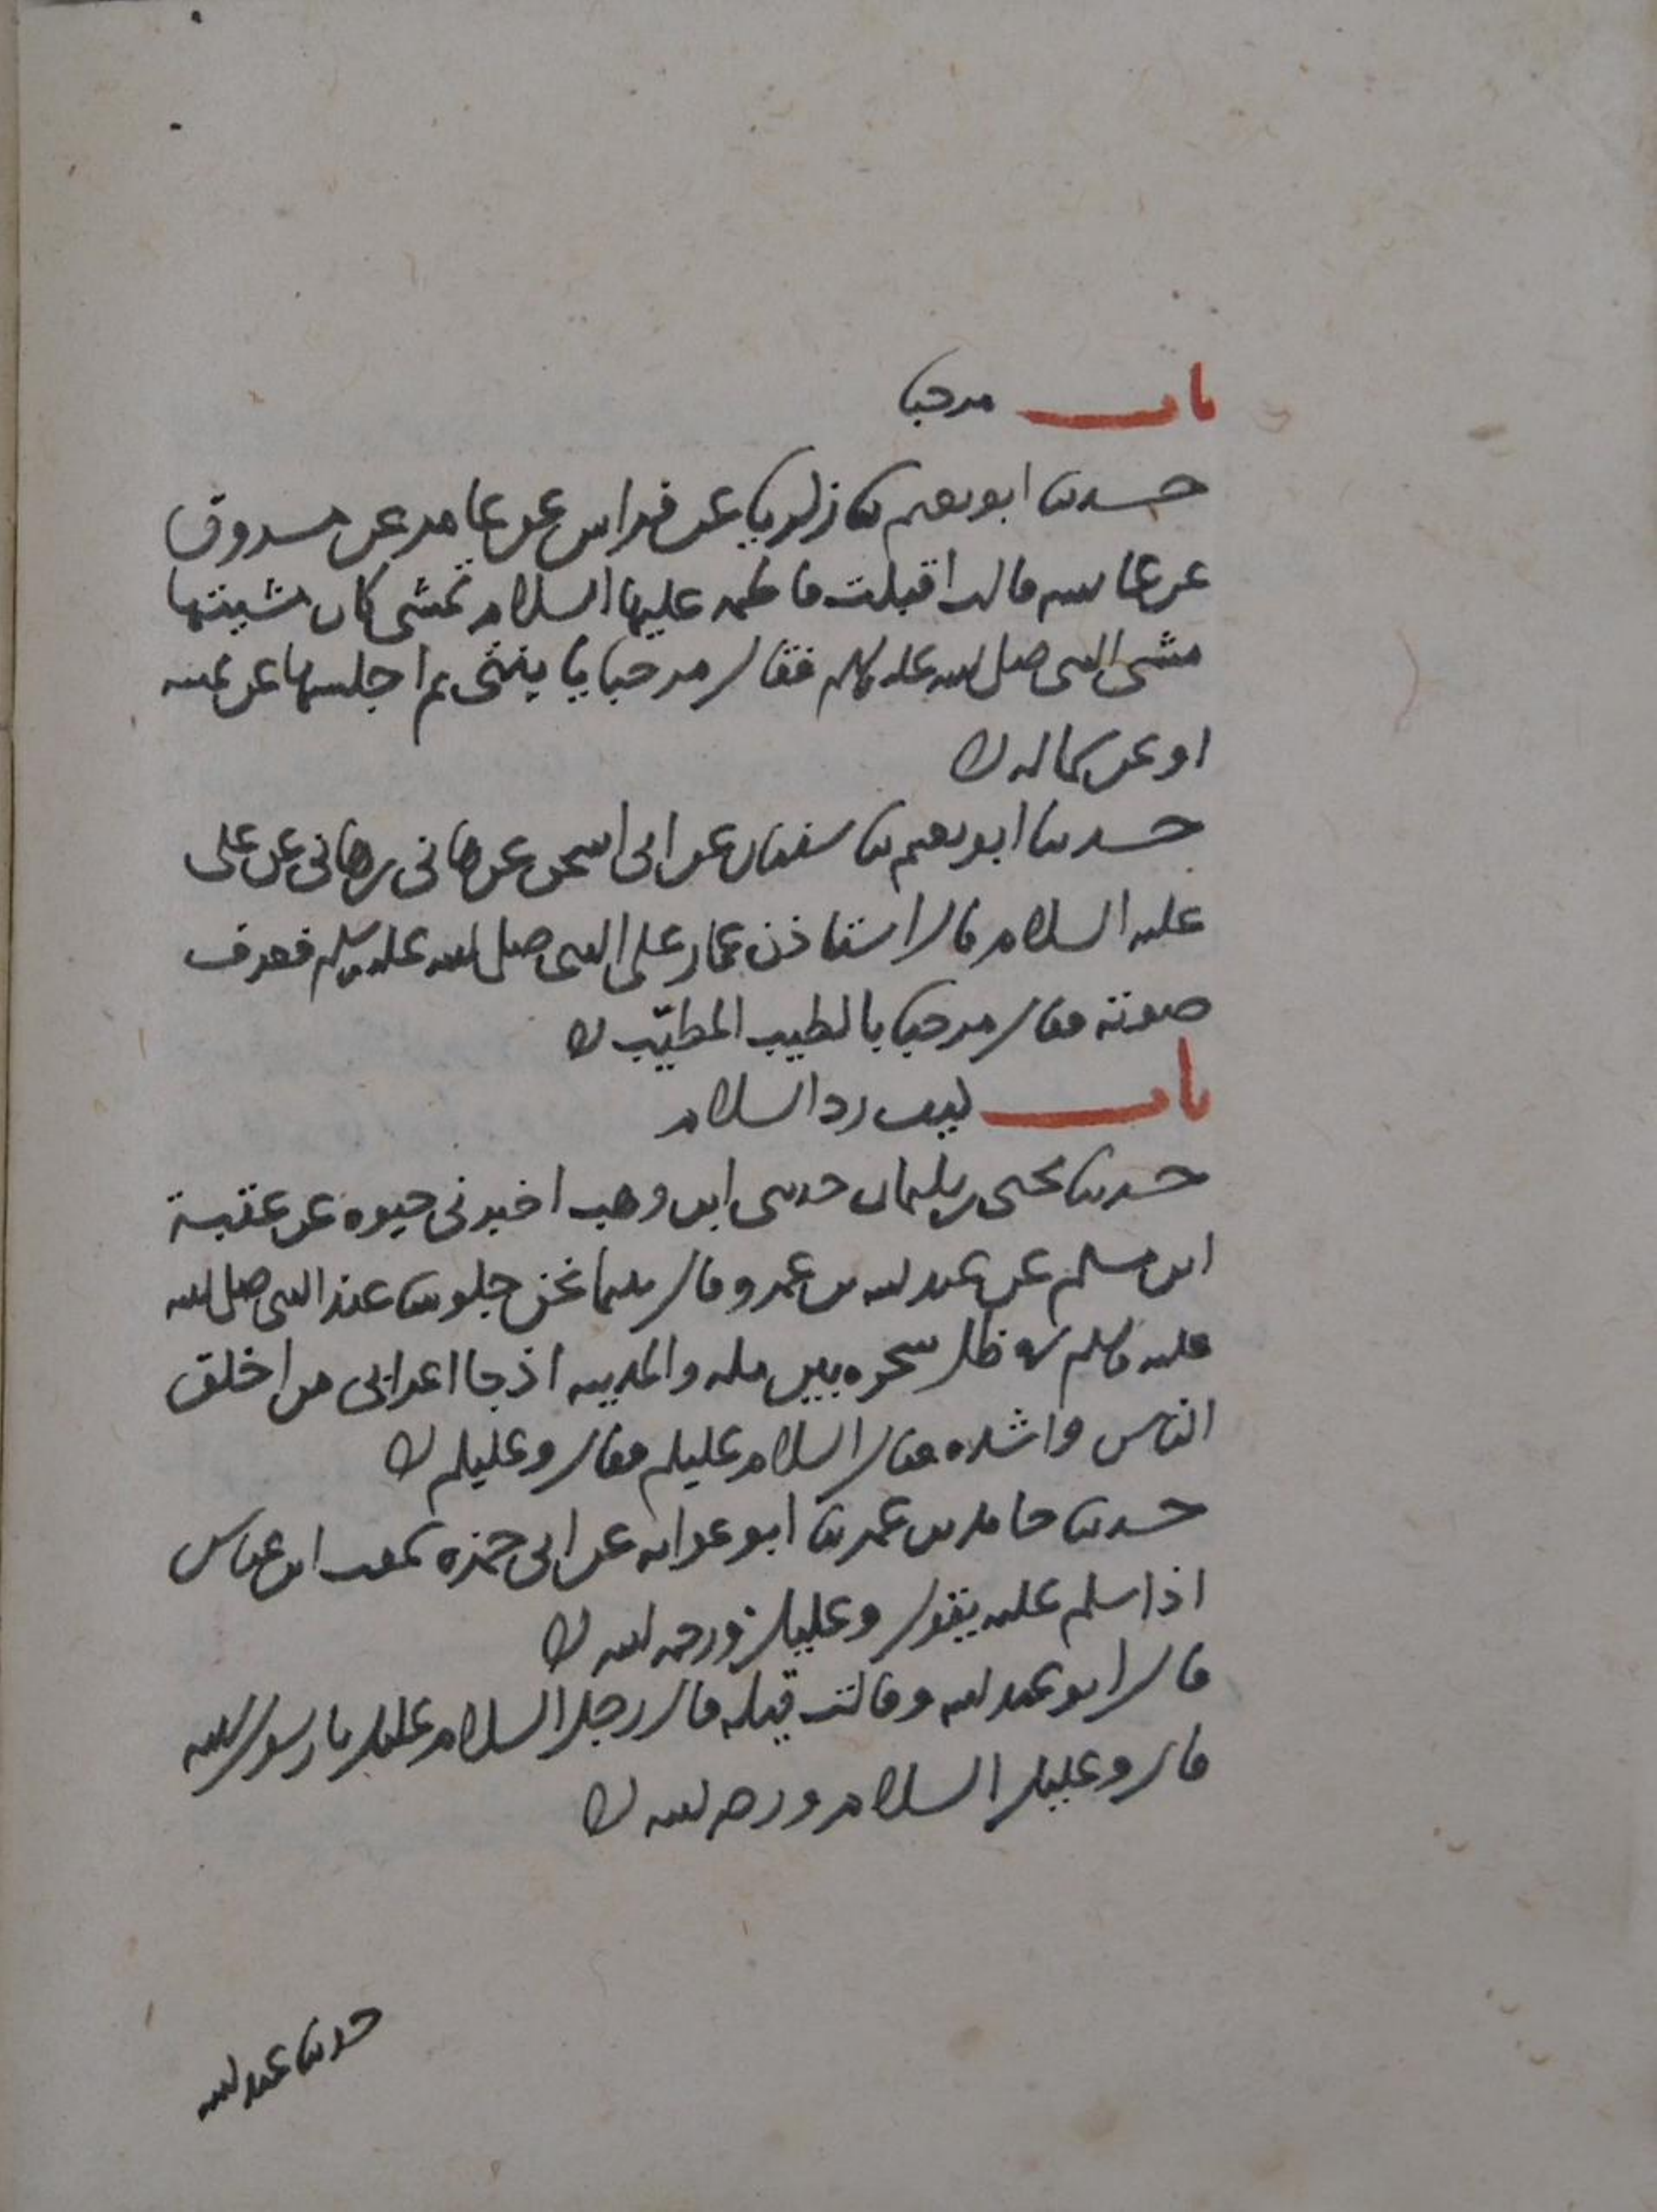 باب مرحبا
حدثنا ابو نعيم ثنا زكريا عن فراس عن عامر عن مسروق
عن عائشه قالت اقبلت فاطمه عليها السلام تمشى كان مشيتها
مشى النبى صلى الله عليه وسلم فقال مرحبا يا بنتى ثم اجلسها عن يمينه
او عن شماله
حدثنا ابو نعيم ثنا سفيان عن ابى اسحق عن هانى بن هانى عن على
عليه السلام قال استاذن عمار على النبى صلى الله عليه وسلم فعرف
صوته فقال مرحبا بالطيب المطيّب
باب كيف رد السلام
حدثنا يحيى بن سليمان حدثنى ابن وهب اخبرنى حيوه عن عقبة
ابن مسلم عن عبد الله بن عمرو قال بينما نحن جلوسا عند النبى صلى الله
عليه وسلم فى ظل شجره بين مكه والمدينه اذ جا اعرابى من اخلق
الناس واشده فقال السلام عليكم فقال وعليكم
حدثنا حامد بن عمر ثنا ابو عوانه عن ابى حمزه سمعت ابن عباس
اذا سلم عليه يقول وعليك ورحمه الله
قال ابو عبد الله وقالت قيله قال رجل السلام عليك يا رسول الله
قال وعليك السلام ورحمه الله
حدثنا عبد الله